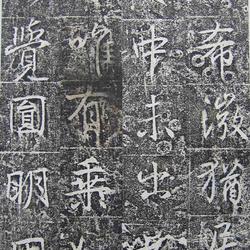 希微猶
中未出
唯有乘
覺圓明